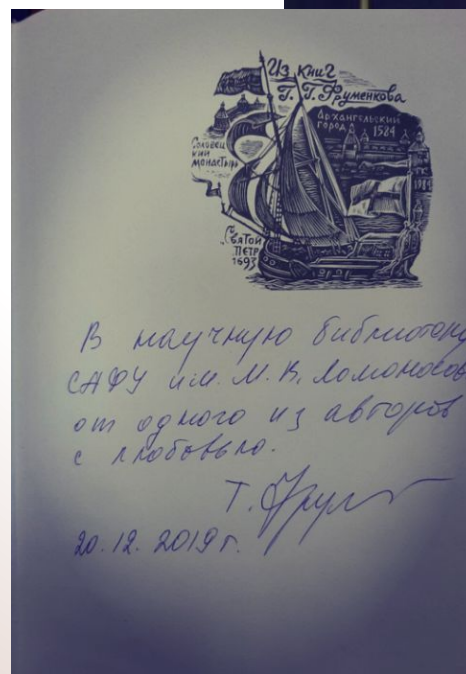 Из книг
Г. Г. Фруменкова
Архангельский
город 1584
Соловец
кий
монастырь
"Святой
Петр
1693
В научную библиотеку
САФУ им. М. В. Ломоносов
от одного из авторов
с любовью.
Т. Фрум
20.12.2019 г.